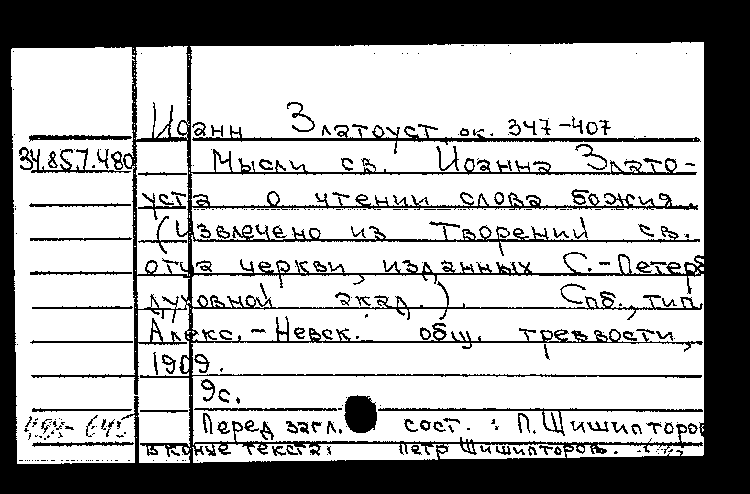 Иоанн Златоуст, ок. 347-407
34.857.480 Мысли св. Иоанна Злато-
уста о чтении слова божия.
(Извлечено из Творений св.
отца церкви, изданных С.-Петерб
духовной акад.). Спб., тип.
Алекс.-Невск. общ. трезвости,
1909.
9с.
Перед загл. сост.: П. Шишипторов
в конце текста: Петр Шишипторов.